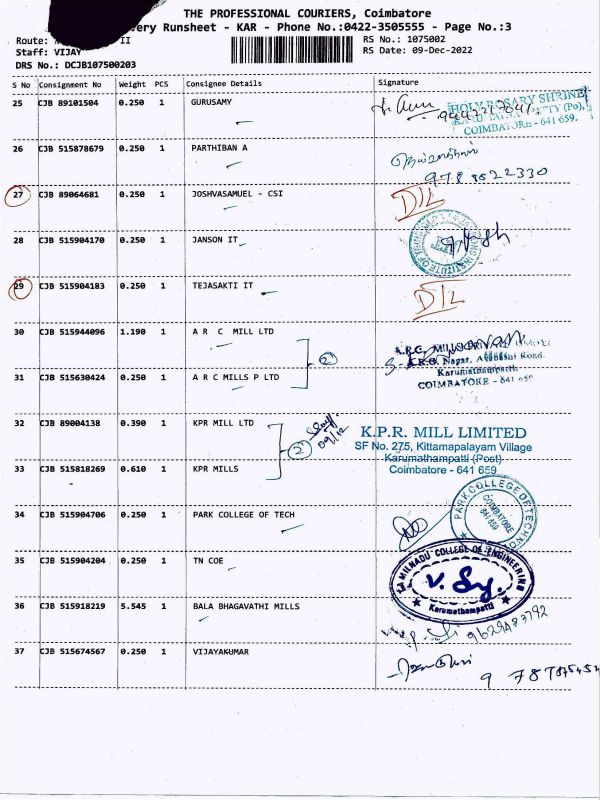 THE PROFESSIONAL COURIERS, Coimbatore
ery Runsheet - KAR - Phone No.:0422-3505555 - Page No.:3
Route: II
RS No.: 1075002
Staff: VIJAY
RS Date: 09-Dec-2022
DRS No.: DCJB107500203
S No Consignment No Weight PCS Consignee Details Signature
25 CJB 89101504 0.250 1 GURUSAMY
HOLY ROSARY SHRINE
COIMBATORE - 641 659.
26 CJB 515878679 0.250 1 PARTHIBAN A
27 CJB 89064681 0.250 1 JOSHVASAMUEL - CSI D/L
28 CJB 515904170 0.250 1 JANSON IT
29 CJB 515904183 0.250 1 TEJASAKTI IT D/L
30 CJB 515944096 1.190 1 A R C MILL LTD
2
Karumathampatti
COIMBATORE - 641 659
31 CJB 515630424 0.250 1 A R C MILLS P LTD
32 CJB 89004138 0.390 1 KPR MILL LTD
2
09/12
K.P.R. MILL LIMITED
SF No. 275, Kittamapalayam Village
Karumathampatti (Post)
Coimbatore - 641 659
33 CJB 515818269 0.610 1 KPR MILLS
34 CJB 515904706 0.250 1 PARK COLLEGE OF TECH
PARK COLLEGE OF TECHNO
COIMBATORE
641 659
35 CJB 515904204 0.250 1 TN COE
TAMILNADU COLLEGE OF ENGINEERING
Karumathampatti
36 CJB 515918219 5.545 1 BALA BHAGAVATHI MILLS
37 CJB 515674567 0.250 1 VIJAYAKUMAR